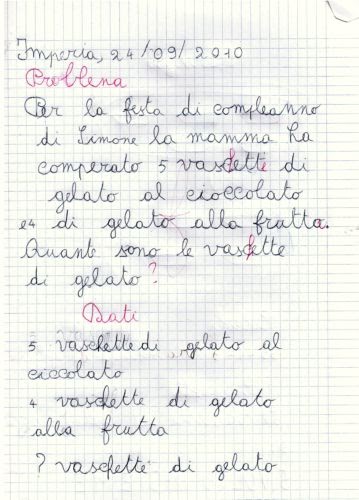 Imperia, 24/09/2010
Problema
Per la festa di compleanno
di Simone la mamma ha
comperato 5 vaschette di
gelato al cioccolato
e4 di gelato alla frutta.
Quante sono le vaschette
di gelato?
Dati
5 vaschette di gelato al
ciccolato
4 vaschette di gelato
alla frutta
? vaschette di gelato